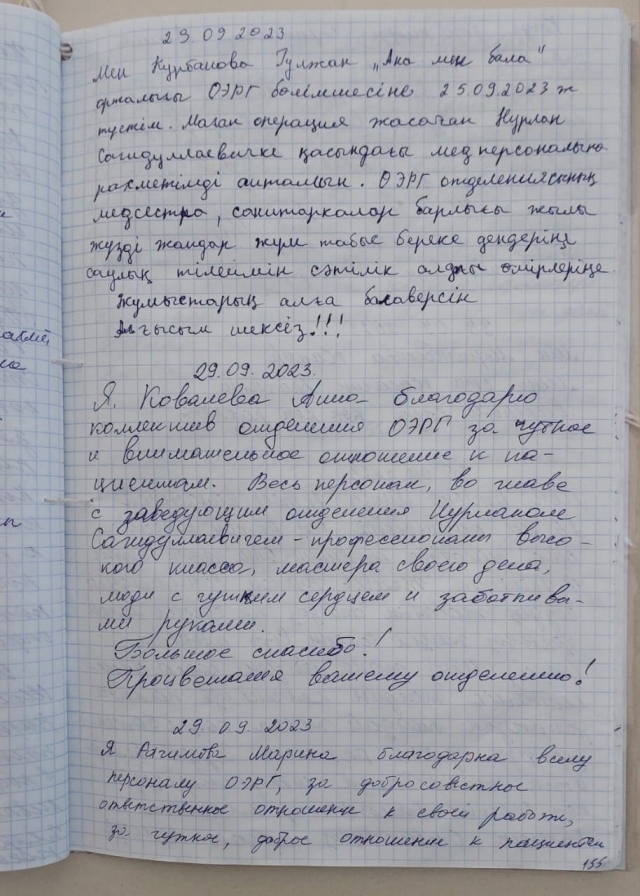 29.09.2023
Мен Курбанова Гулжан „Ана мен бала"
орталығы ОЭРГ бөлімшесіне 25.09.2023 ж
түстім. Маған операция жасаған Нурлан
Сагидуллаевичке қасындағы мед персоналына
рахметімді айтамын. ОЭРГ отделениясының
медсестра, санитаркалар барлығы жылы
жүзді жандар жұм табыс береке дендеріңе
саулық тілеймін сәтілік алдағы өмірлеріңе
Жумыстарың алға басаверсін
Алғысым шексіз!!!
29.09.2023.
Я, Ковалева Анна благодарю
коллектив отделения ОЭРГ за чуткое
и внимательное отношение к па-
циентам. Весь персонал, во главе
с заведующим отделения Нурланом
Сагидуллаевичем - профессионалы высо-
кого класса, мастера своего дела,
люди с чутким сердцем и заботливы-
ми руками.
Большое спасибо!
Процветания вашему отделению!
29.09.2023
Я Марина благодарна всему
персоналу ОЭРГ, за добросовестное
ответственное отношение к своей работе,
за чуткое, доброе отношение к пациентам
155